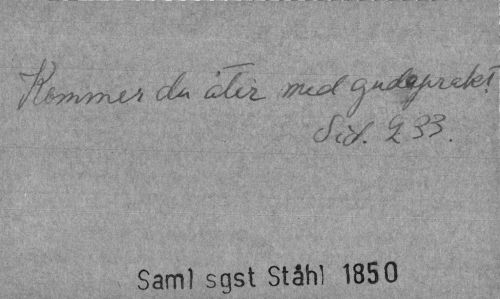 Kommer du åter med gudaprakt?
Sid. 233.
Saml sgst Ståhl 1850